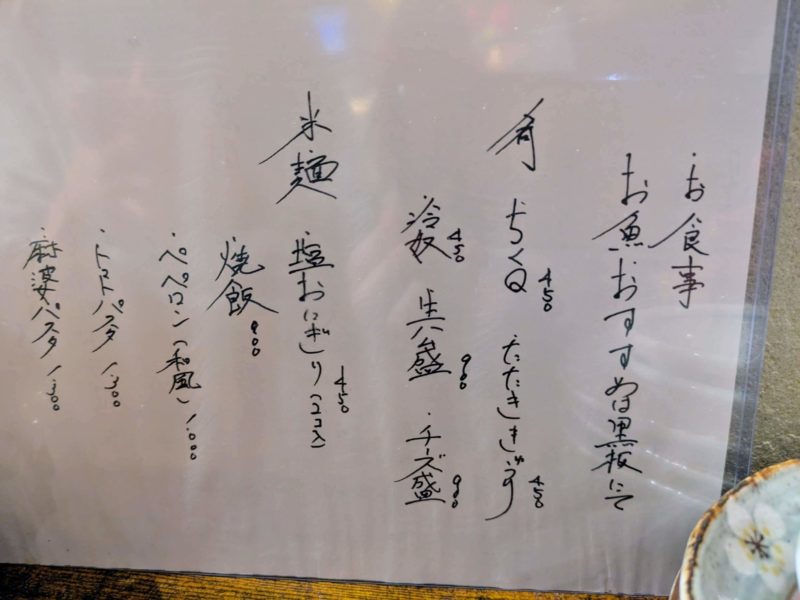 ・お食事
お魚おすすめは黒板にて
肴 ちくQ 450 たたききゅうり 450
冷奴 450 貝盛 900 ・チーズ盛 900
米 麺 ・塩おにぎり(2コ入) 450
・焼飯 900
・ペペロン(和風) 1.000
・トマトパスタ 1.300
・麻婆パスタ 1.300